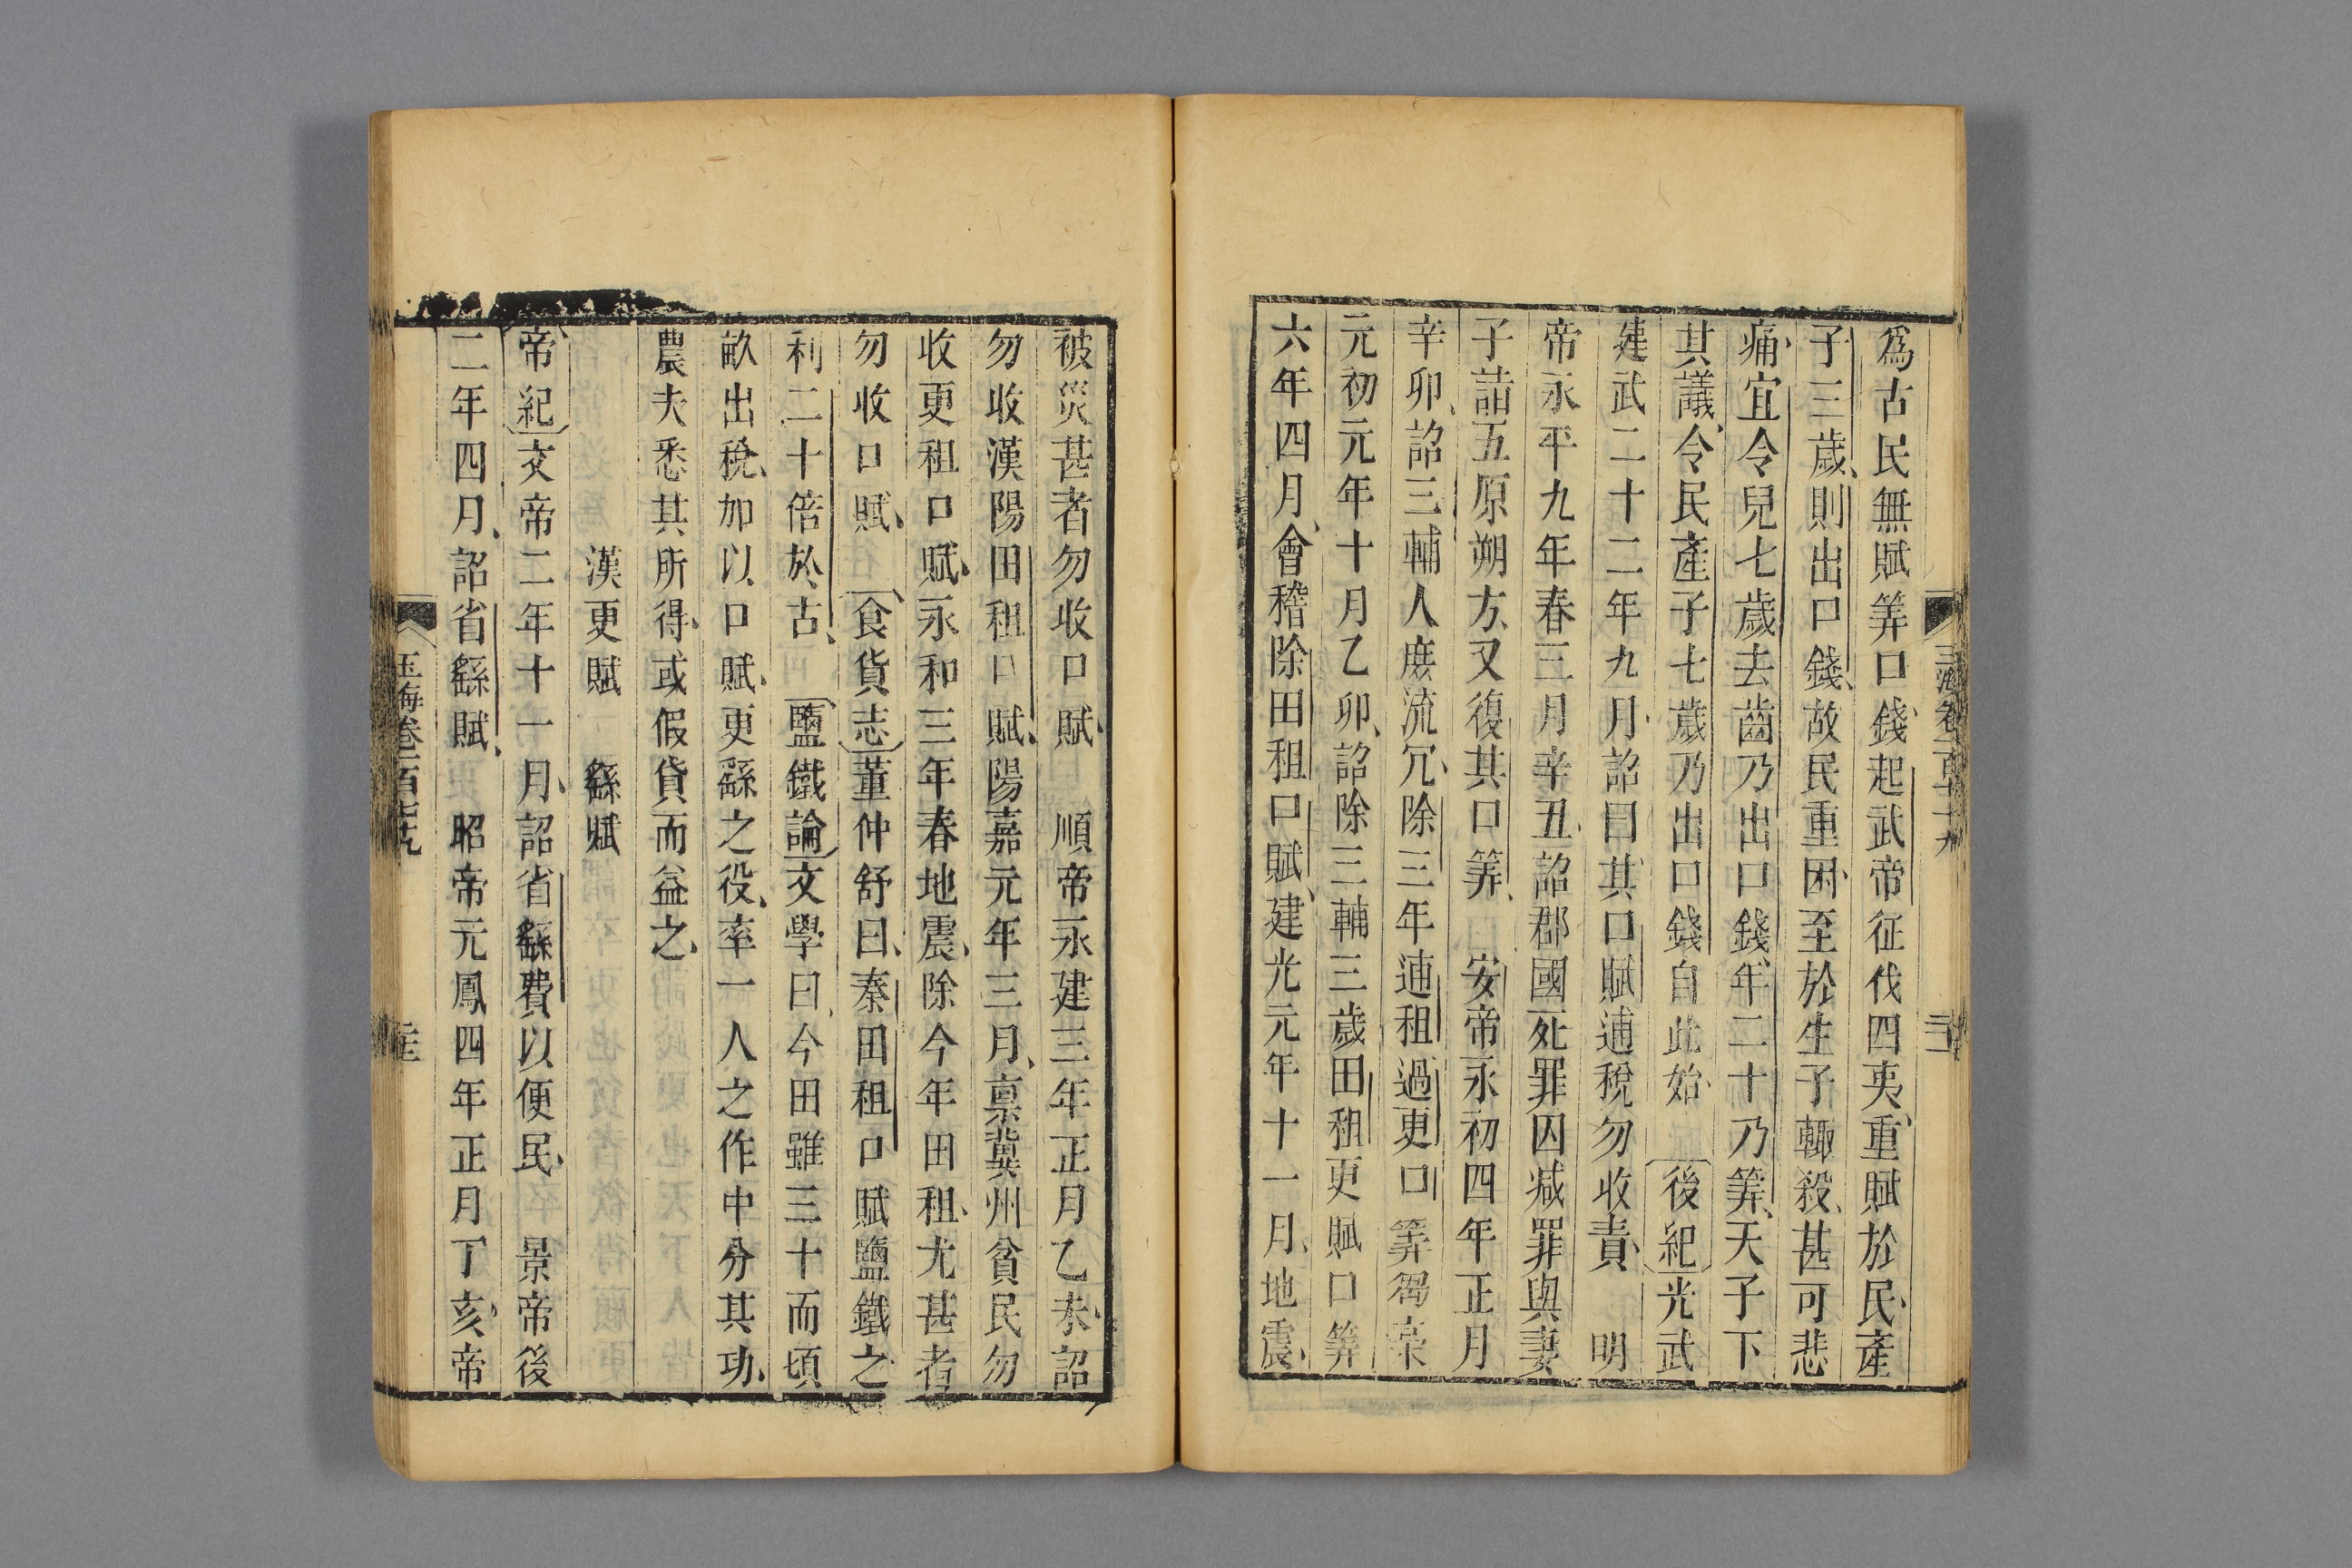 爲古民無賦筭口錢起武帝征伐四夷重賦於民產
子三歲則出口錢故民重困至於生子輙殺甚可悲
痛宜令兒七歲去齒乃出口錢年二十乃筭天子下
其議令民產子七歲乃出口錢自此始 後紀光武
建武二十二年九月詔曰其口賦逋稅勿收責 明
帝永平九年春三月辛丑詔郡國死罪囚減罪與妻
子詣五原朔方又復其口筭 安帝永初四年正月
辛卯詔三輔人庶流冗除三年逋租過更口筭芻稾
元初元年十月乙卯詔除三輔三歲田租更賦口筭
六年四月會稽除田租口賦建光元年十一月地震
被災甚者勿收口賦 順帝永建三年正月乙未詔
勿收漢陽田租口賦陽嘉元年三月稟冀州貧民勿
收更租口賦永和三年春地震除今年田租尤甚者
勿收口賦 食貨志董仲舒曰秦田租口賦鹽鐵之
利二十倍於古 鹽鐵論文學曰今田雖三十而頃
畝出稅加以口賦更繇之役率一人之作中分其功
農夫悉其所得或假貸而益之
漢更賦 繇賦
帝紀文帝二年十一月詔省繇費以便民 景帝後
二年四月詔省繇賦 昭帝元鳳四年正月丁亥帝
玉海卷一百七十九